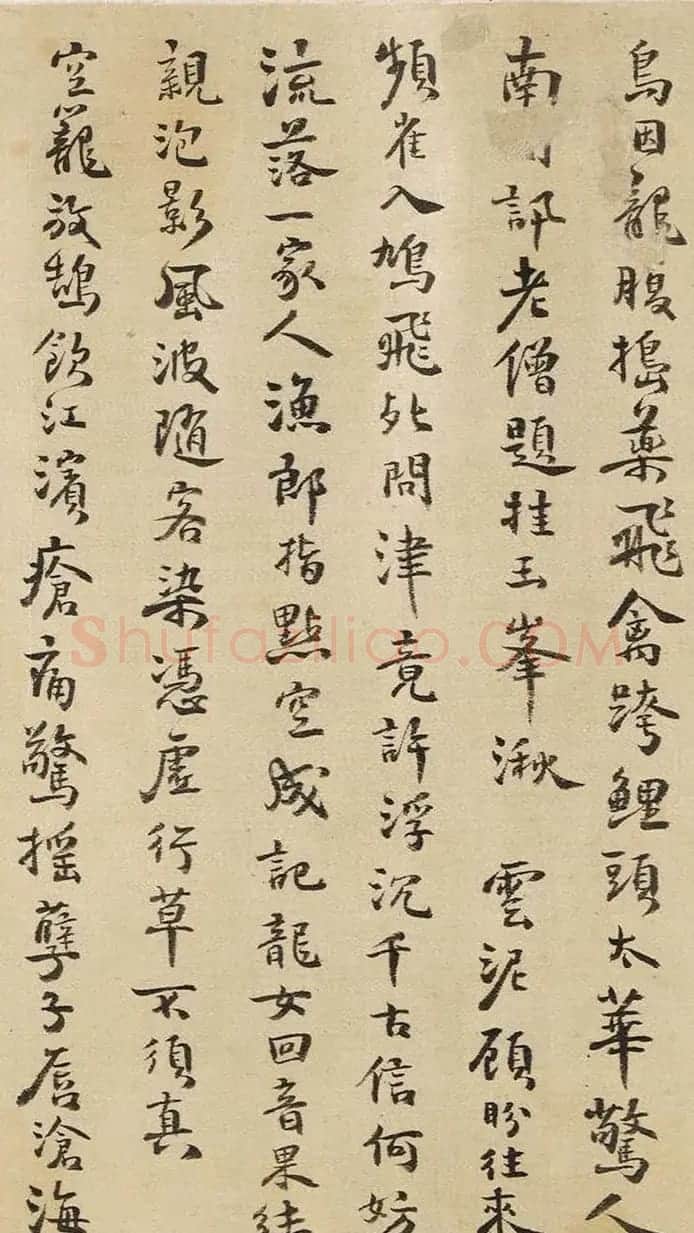 鳥因龍腹搗藥飛禽跨鯉頭太華驚人
南訊老僧題挂玉峯湫 雲泥顧盼往來
頻雀入鳩飛死問津竟許浮沉千古信何妨
流落一家人漁郎指點空成記龍女回音果
親泡影風波隨客染憑虛行草不須真
空籠放鵠飲江濱瘡痛驚搖孽子唇滄海
Shufaziliao.COM